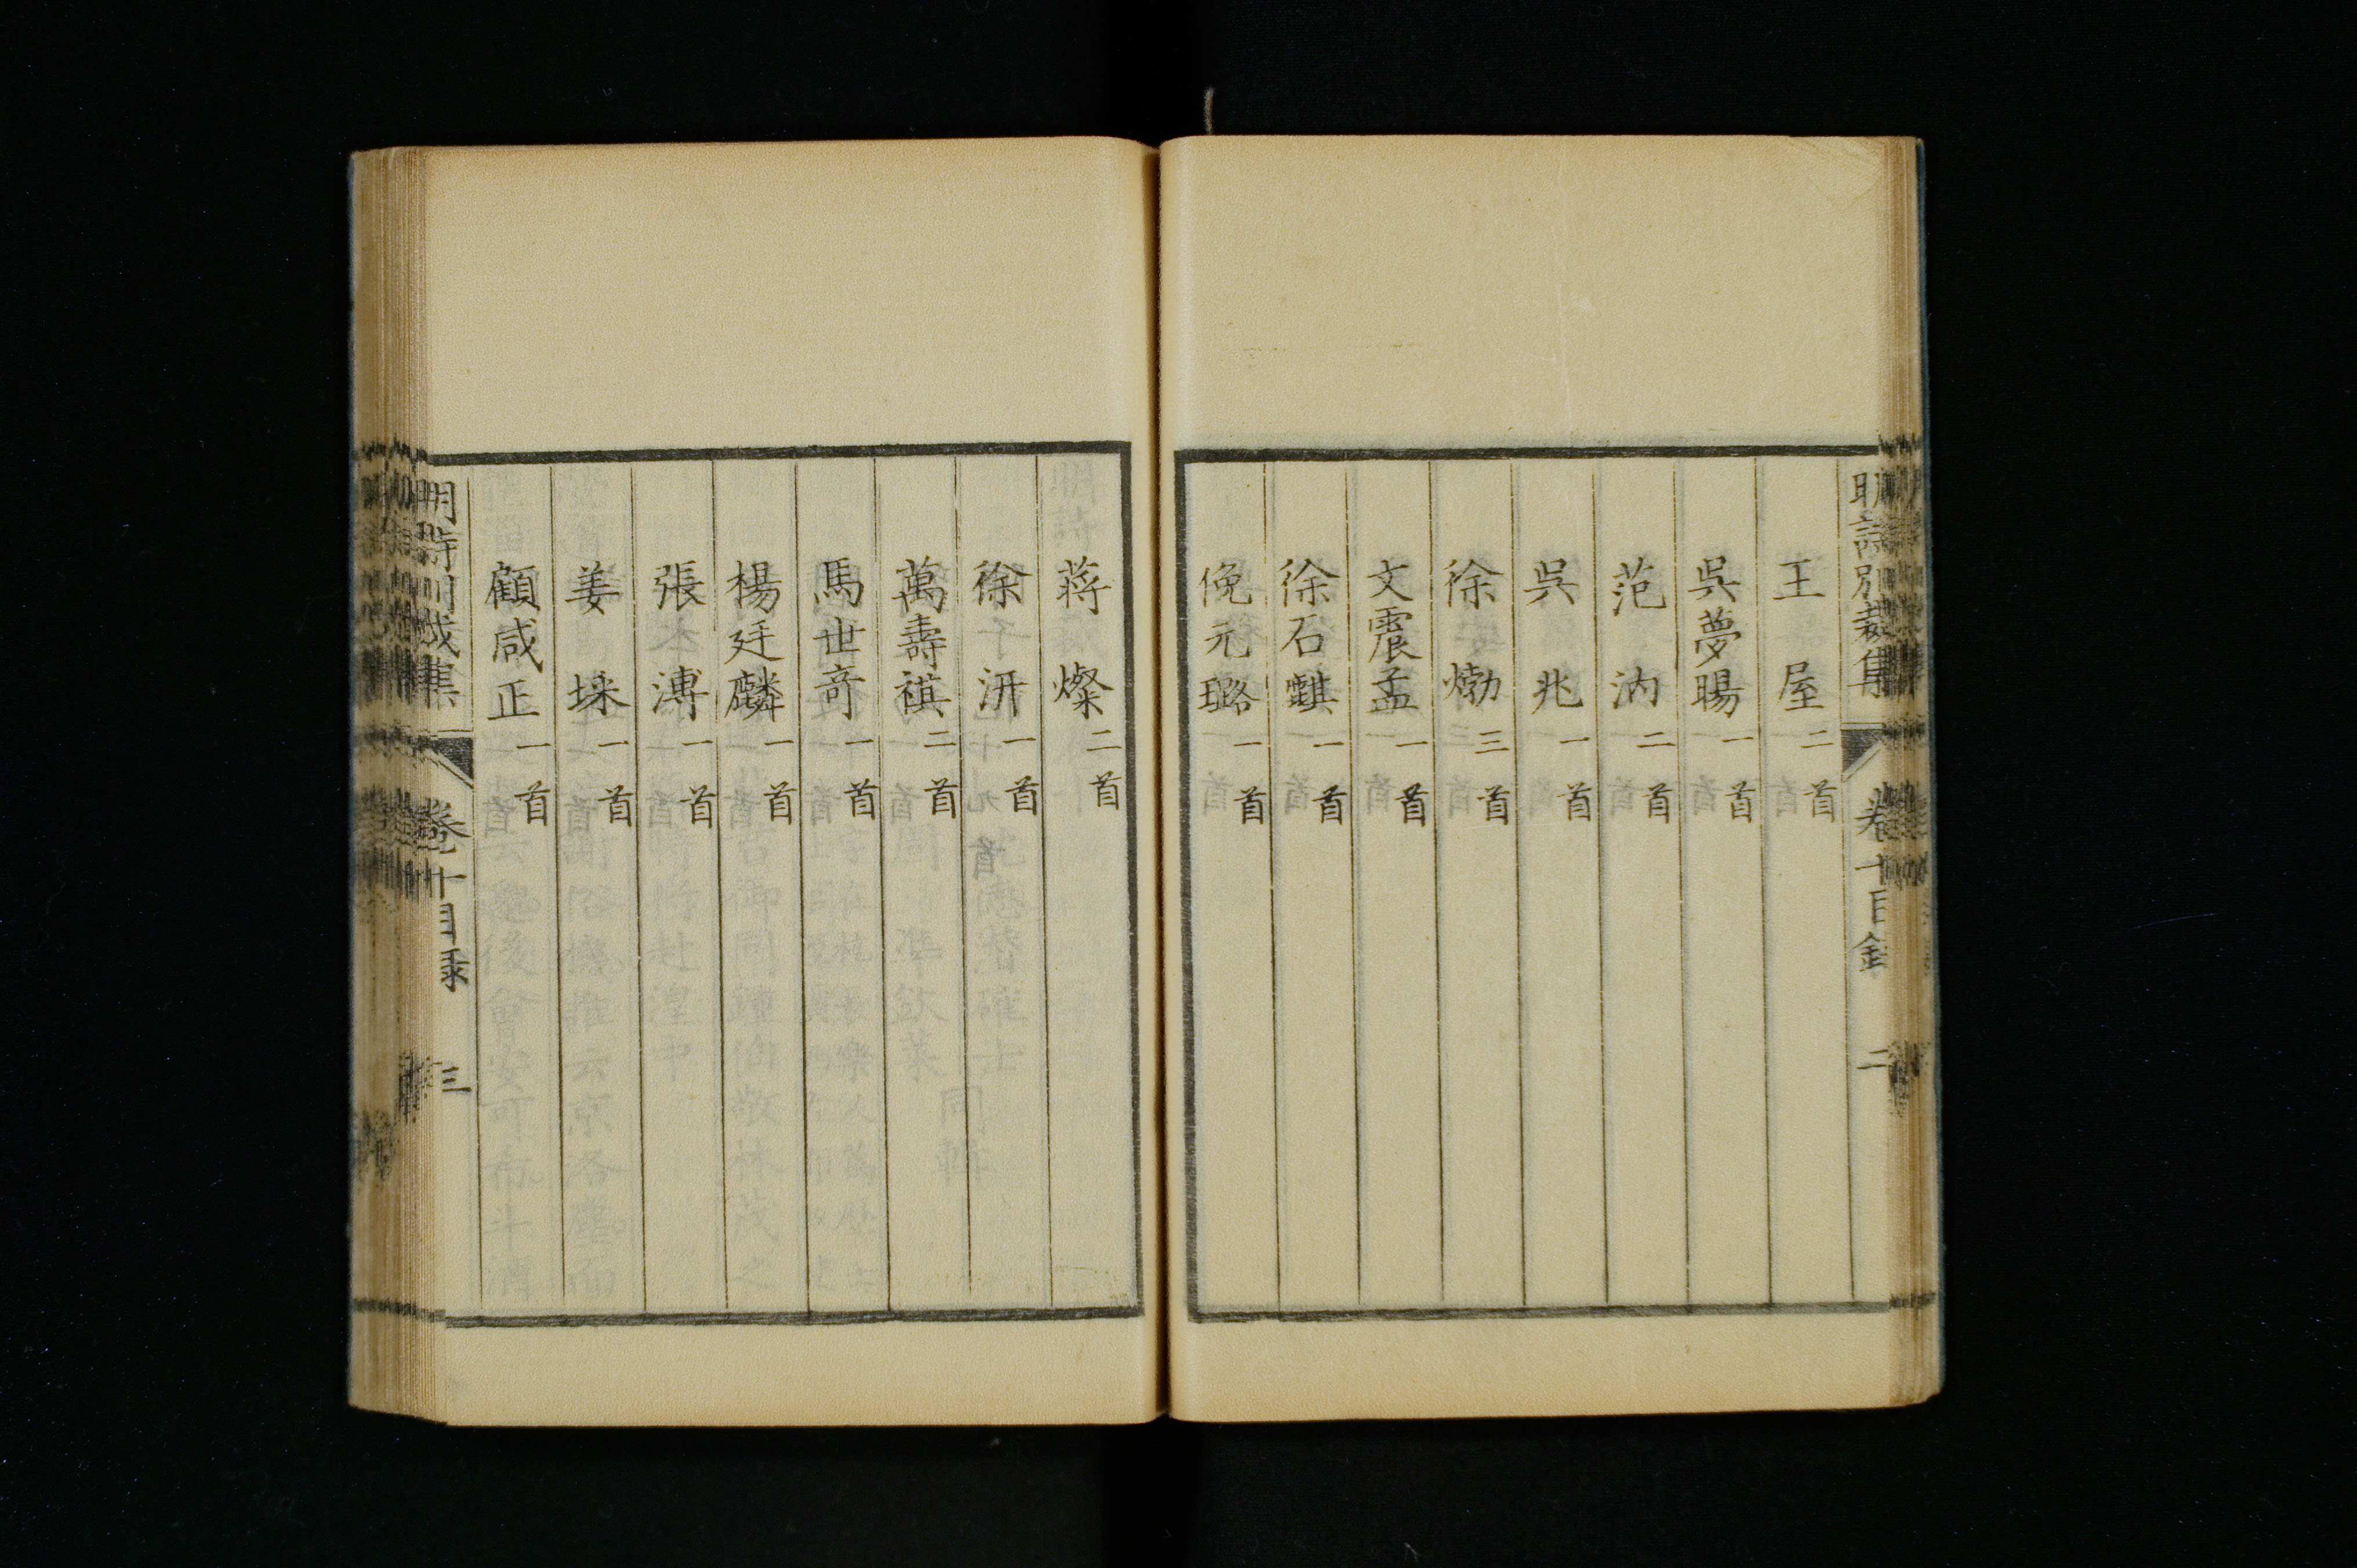 明詩別裁集 卷十目錄 二
王屋二首
吳夢暘一首
范汭二首
吳兆一首
徐𤊹三首
文震孟一首
徐石麒一首
倪元璐一首
蔣燦二首
徐于汧一首
萬壽祺二首
馬世奇一首
楊廷麟一首
張溥一首
姜埰一首
顧咸正一首
明詩別裁集 卷十目錄 三